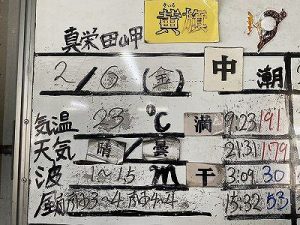 きいろ
黄旗
真栄田岬
2/ (金) 中潮
気温 23 ℃ 満 9:23 191
天気 晴/曇 21:31 179
波 1~1.5 m 干 3:09 30
風 3~4 4 15:32 53